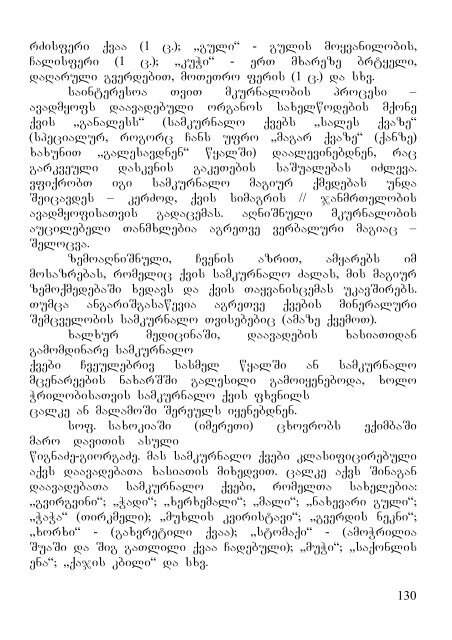 რძისფერი ქვაა (1 ც.); „გული“ - გულის მოყვანილობის,
ჩალისფერი (1 ც.); „კუჭი“ - ერთ მხარეზე ბრტყელი,
დაღარული გვერდებით, მოთეთრო ფერის (1 ც.) და სხვ.
საინტერესოა თვით მკურნალობის პროცესი –
ავადმყოფს დაავადებული ორგანოს სახელწოდების მქონე
ქვის „განალესს“ (სამკურნალო ქვებს „სალეს ქვაზე“
(სპეციალურ, როგორც ჩანს უფრო „მაგარ ქვაზე“ (ქანზე)
ხახუნით „გალესავდნენ“ წყალში) დაალევინებდნენ, რაც
გარკვეული დასკვნის გაკეთების საშუალებას იძლევა.
ვფიქრობთ იგი სამკურნალო მაგიურ ქმედებას უნდა
შეიცავდეს – კერძოდ, ქვის სიმაგრის // ჯანმრთელობის
ავადმყოფისათვის გადაცემას. აღნიშნული მკურნალობის
აუცილებელი თანმხლებია აგრეთვე ვერბალური მაგიაც –
შელოცვა.
ზემოაღნიშნული, ჩვენის აზრით, ამყარებს იმ
მოსაზრებას, რომელიც ქვის სამკურნალო ძალას, მის მაგიურ
ზემოქმედებაში ხედავს და ქვის თაყვანისცემას უკავშირებს.
თუმცა ანგარიშგასაწევია აგრეთვე ქვების მინერალური
შემცველობის სამკურნალო თვისებებიც (ამაზე ქვემოთ).
ხალხურ მედიცინაში, დაავადების ხასიათიდან
გამომდინარე სამკურნალო
ქვები ჩვეულებრივ სასმელ წყალში ან სამკურნალო
მცენარეების ნახარშში გალესილი გამოიყენებოდა, ხოლო
ჭრილობისათვის სამკურნალო ქვის ფხვნილს
ცალკე ან მალამოში შერეულს იყენებდნენ.
სოფ. სახოკიაში (იმერეთი) ცხოვრობს ექიმბაში
მარო დავითის ასული
წიგნაძე-გიორგაძე. მას სამკურნალო ქვები კლასიფიცირებული
აქვს დაავადებათა ხასიათის მიხედვით. ცალკე აქვს შინაგან
დაავადებათა სამკურნალო ქვები, რომელთა სახელებია:
„გვირგვინი“; „ჭადი“; „ხერხემალი“; „მალი“; „ნახევარი გული“;
„ჭაჭა“ (თირკმელი); „მუხლის კვირისტავი“; „გვერდის ნეკნი“;
„ხორხი“ - (გახვრეტილი ქვაა); „სტომაქი“ - (ამოჭრილია
შუაში და შიგ გათლილი ქვაა ჩადებული); „მუჭი“; „საქონლის
ენა“; „ქაჯის კბილი“ და სხვ.
130